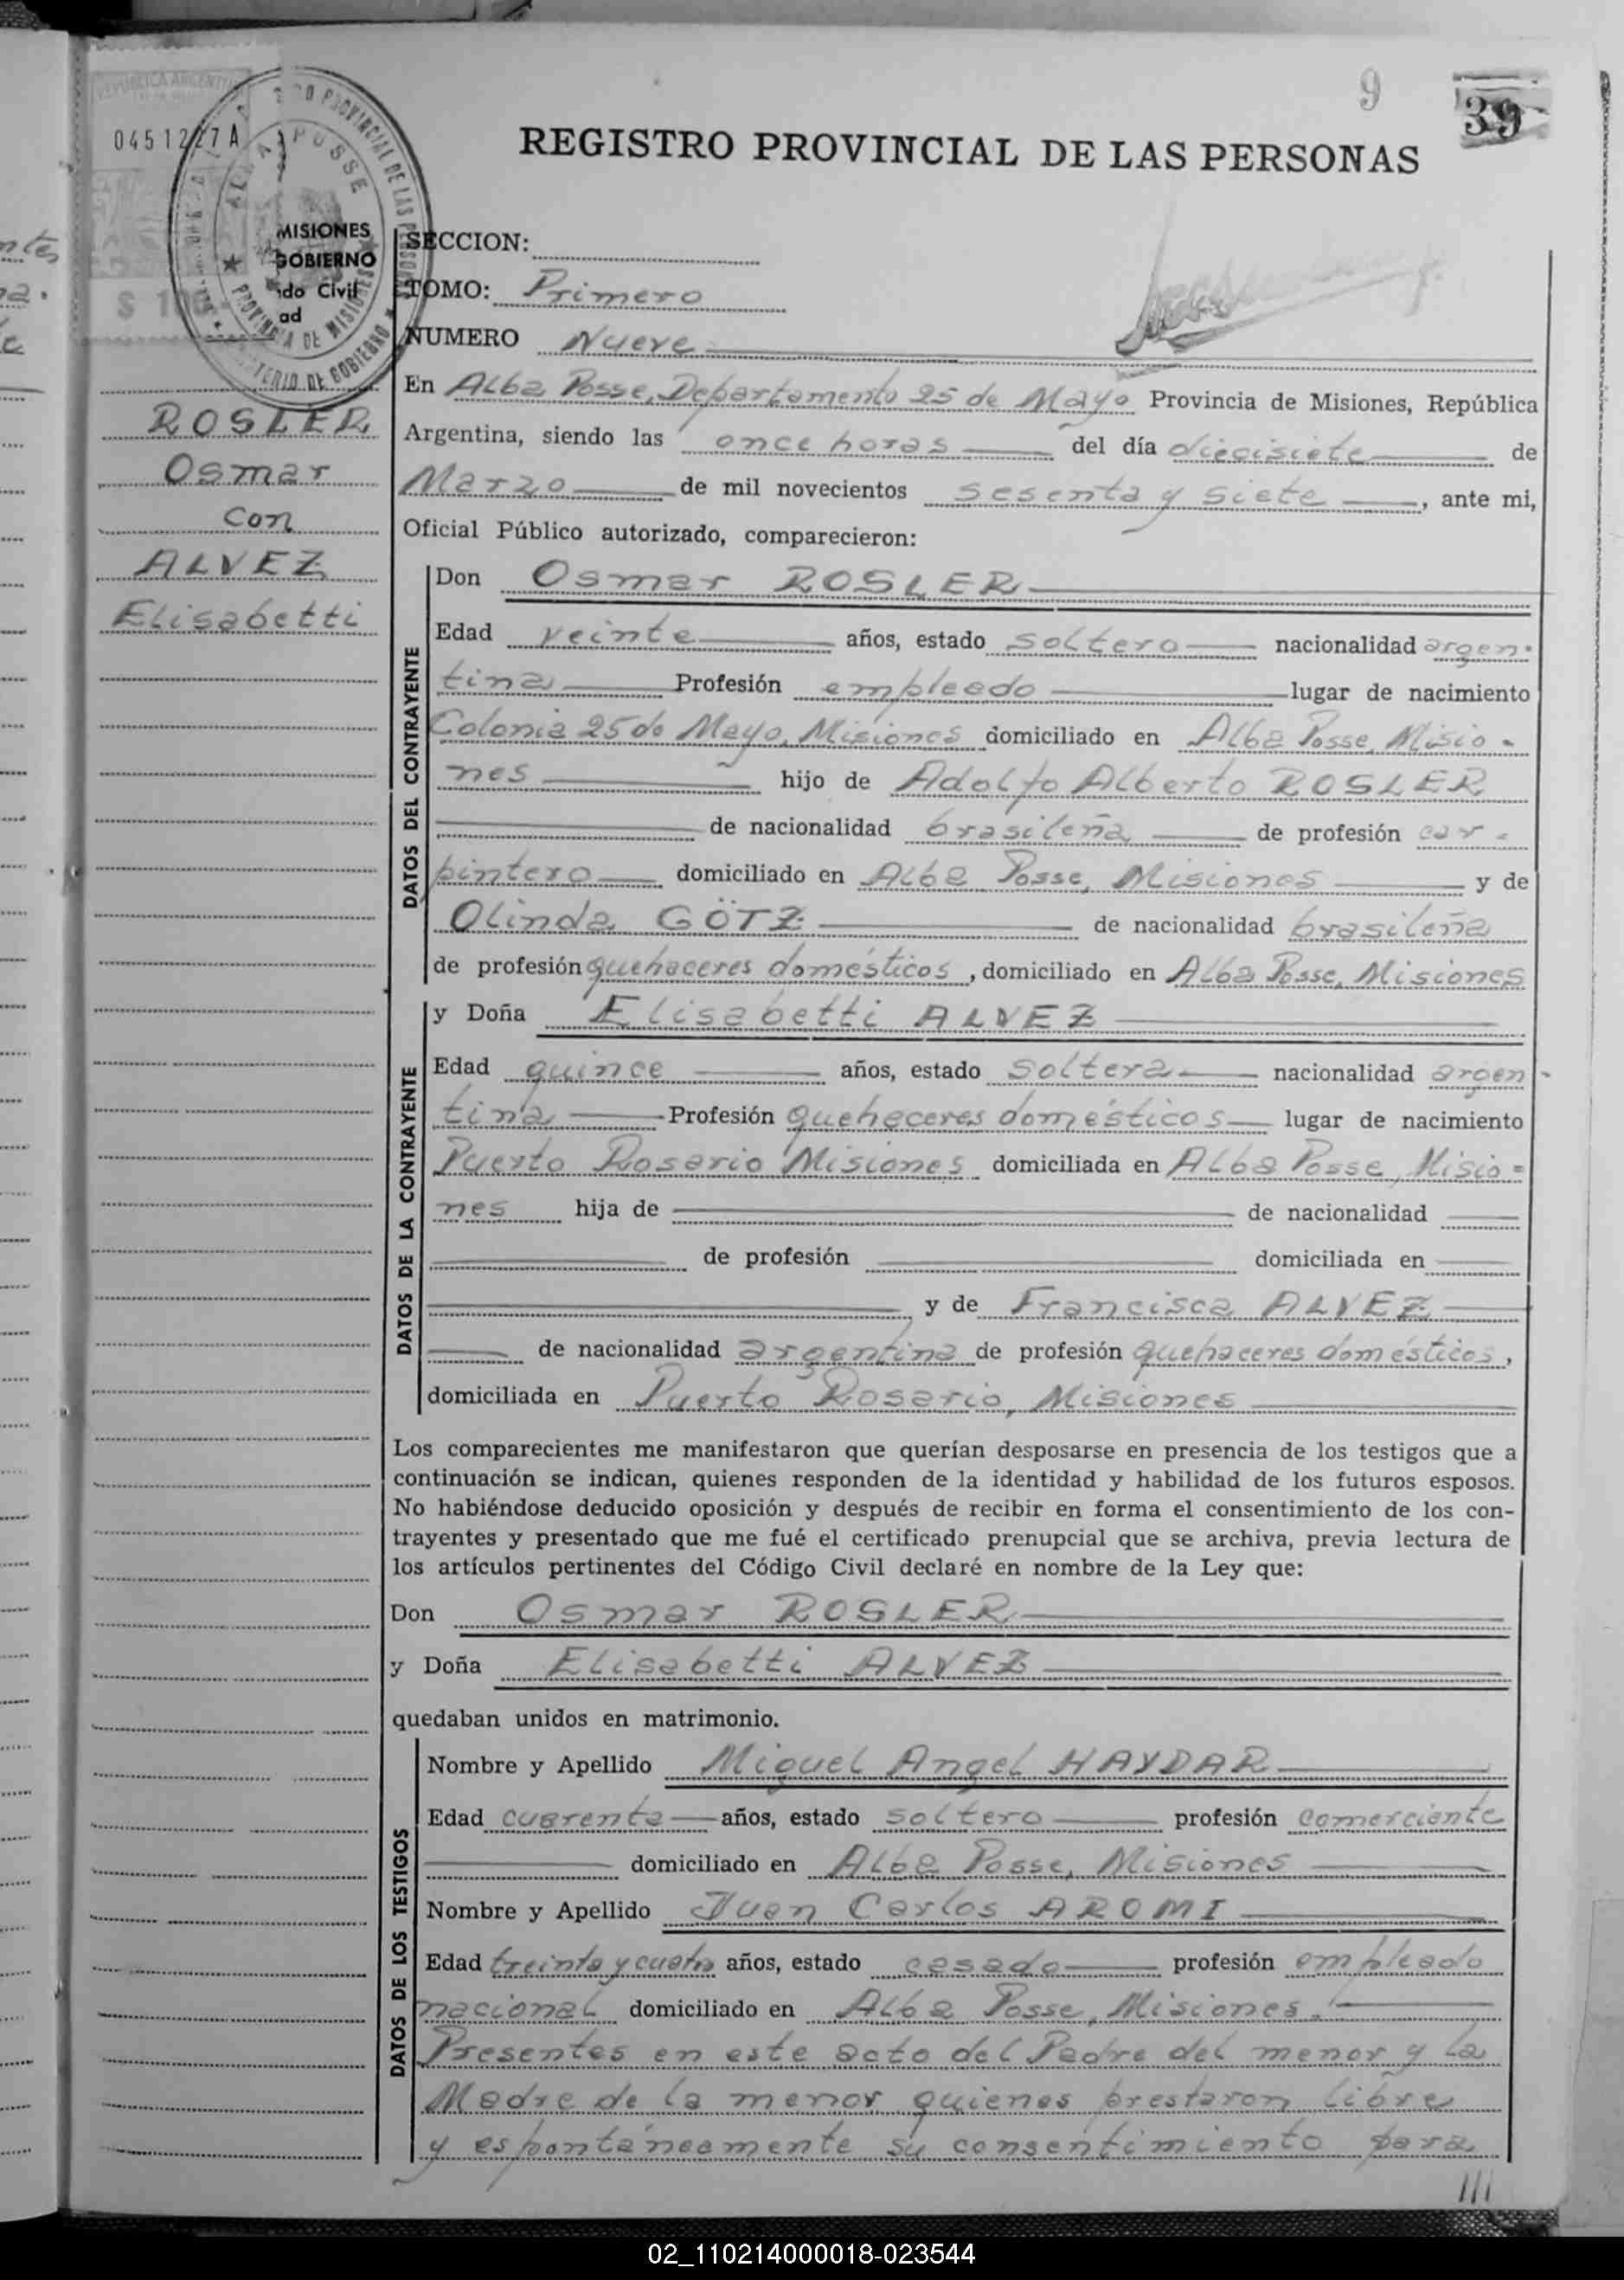 9
39
REPUBLICA ARGENTINA
0451227 A
ALBA POSSE
PROVINCIA DE MISIONES
MISIONES
GOBIERNO
ido Civil
ad
REGISTRO PROVINCIAL DE LAS PERSONAS
SECCION:
TOMO: Primero
NUMERO Nueve
ROSLER
Osmar
con
ALVEZ
Elisabetti
En Alba Posse, Departamento 25 de Mayo Provincia de Misiones, República
Argentina, siendo las once horas del día diecisiete de
Marzo de mil novecientos sesenta y siete, ante mi,
Oficial Público autorizado, comparecieron:
DATOS DEL CONTRAYENTE
Don Osmar ROSLER
Edad veinte años, estado soltero nacionalidad argen-
tina Profesión empleado lugar de nacimiento
Colonia 25 de Mayo, Misiones domiciliado en Alba Posse, Misio-
nes hijo de Adolfo Alberto ROSLER
de nacionalidad brasileña de profesión car-
pintero domiciliado en Alba Posse, Misiones y de
Olinda GÖTZ de nacionalidad brasileña
de profesión quehaceres domésticos, domiciliado en Alba Posse, Misiones
DATOS DE LA CONTRAYENTE
y Doña Elisabetti ALVEZ
Edad quince años, estado soltera nacionalidad argen-
tina Profesión quehaceres domésticos lugar de nacimiento
Puerto Rosario Misiones domiciliada en Alba Posse, Misio=
nes hija de de nacionalidad
de profesión domiciliada en
y de Francisca ALVEZ
de nacionalidad argentina de profesión quehaceres domésticos,
domiciliada en Puerto Rosario, Misiones
Los comparecientes me manifestaron que querían desposarse en presencia de los testigos que a
continuación se indican, quienes responden de la identidad y habilidad de los futuros esposos.
No habiéndose deducido oposición y después de recibir en forma el consentimiento de los con-
trayentes y presentado que me fué el certificado prenupcial que se archiva, previa lectura de
los artículos pertinentes del Código Civil declaré en nombre de la Ley que:
Don Osmar ROSLER
y Doña Elisabetti ALVEZ
quedaban unidos en matrimonio.
DATOS DE LOS TESTIGOS
Nombre y Apellido Miguel Angel HAYDAR
Edad cuarenta años, estado soltero profesión comerciante
domiciliado en Alba Posse, Misiones
Nombre y Apellido Juan Carlos AROMI
Edad treinta y cuatro años, estado casado profesión empleado
nacional domiciliado en Alba Posse, Misiones.
Presentes en este acto del Padre del menor y la
Madre de la menor quienes prestaron libre
y espontáneamente su consentimiento para
///
02_110214000018-023544